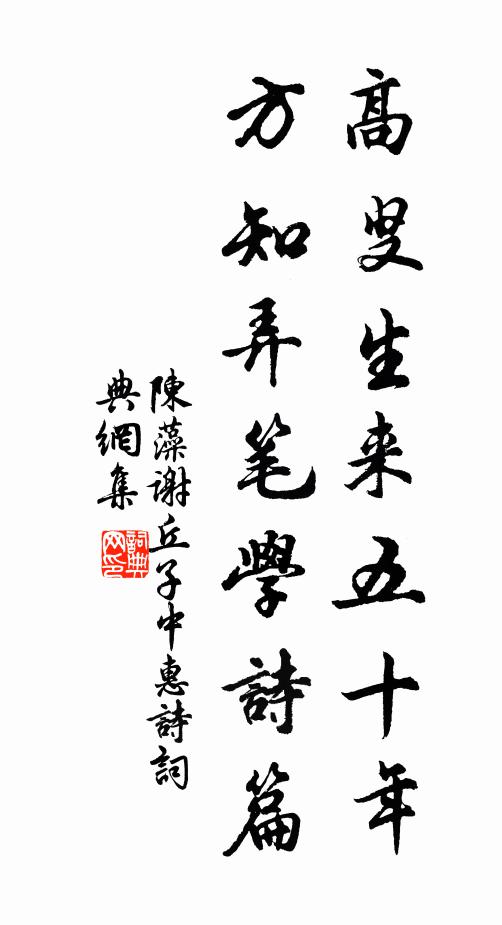 高叟生来五十年
方知弄笔學詩篇
陳藻謝丘子中惠詩詞
典網集
詞典网印